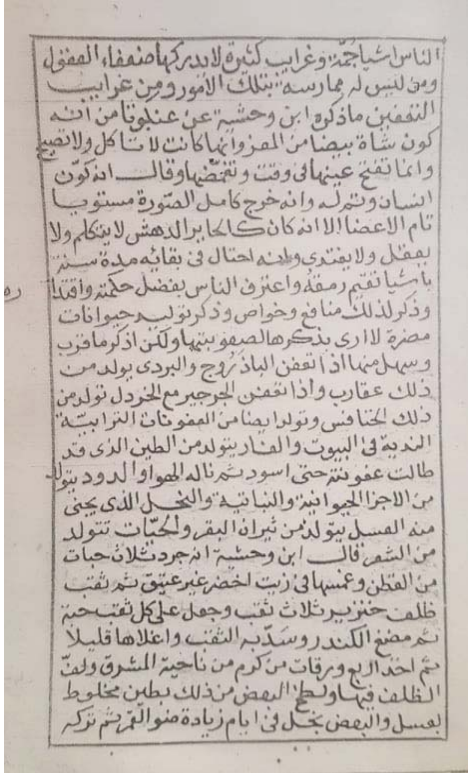 الناس اشياجمة وغرايب كثيرة لايدركها ضعفاء العقول
ومن ليس له ممارسة بتلك الامور ومن غرايب
التعفين ماذكره ابن وحشية عن عنلوتا من انه
كون شاة بيضا من المعز وانها كانت لا تاكل ولا تصيح
وانما تفتح عينها فى وقت وتغمضها وقال انه كون
انسان وتم له وانه خرج كامل الصورة مستويا
تام الاعضا الا انه كان كالحاير الدهش لايتكلم ولا
يعقل ولا يغتدى وانه احتال فى بقائه مدة سنة
باشيا تقيم رمقه واعترف الناس بفضل حكمته واقتدا
ره
وذكر لذلك منافع وخواص وذكر توليد حيوانات
مضرة لا ارى بذكرها لصعوبتها ولكن اذكر ما قرب
وسهل منها اذا تعفن الباذروج والبردى يولد من
ذلك عقارب واذا تعفن الجرجير مع الخردل تولد من
ذلك الخنافس وتولد ايضا من العفونات الترابية
الندية فى البيوت والفار يتولد من الطين الذى قد
طالت عفونته حتى اسود ثم ناله الهوا والدود يتولد
من الاجزا الحيوانية والنباتية والنحل الذى يجنى
منه العسل يتولد من ثيران البقر والحيات تتولد
من الشعر قال ابن وحشية انه جرد ثلاث حبات
من القطن وغمسها فى زيت اخضر غير عتيق ثم ثقب
ظلف خنزير ثلاث ثقب وجعل على كل ثقب حبة
ثم مضغ الكندر وسد به الثقب واغلاها قليلا
ثم اخد اربع ورقات من كرم من ناحية المشرق ولف
الظلف فيها ولطخ البعض من ذلك بطين مخلوط
بعسل والبعض بخل فى ايام زيادة ضو القمر ثم تركه